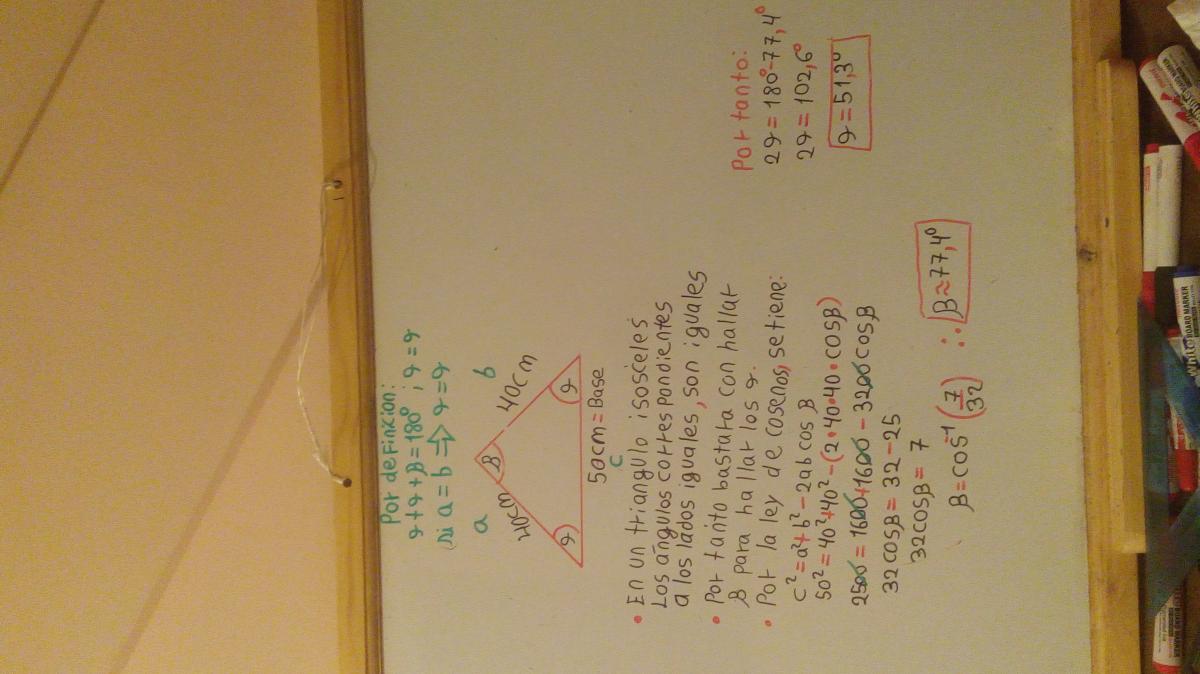 Por definicion:
φ+φ+β=180° ; φ=φ
Si a=b ⇒ φ=φ
a
b
40cm
β
40cm
φ
φ
50cm=Base
c
• En un triangulo isosceles
Los ángulos correspondientes
a los lados iguales, son iguales
• Por tanto bastara con hallar
β para hallar los φ.
• Por la ley de cosenos, se tiene:
c²=a²+b²-2ab cos β
50²=40²+40²-(2•40•40•cosβ)
2500=1600+1600-3200cosβ
32cosβ=32-25
32cosβ=7
β=cos⁻¹(7/32) ∴ β≈77,4°
Por tanto:
2φ=180°-77,4°
2φ=102,6°
φ=51,3°
BOARD MARKER